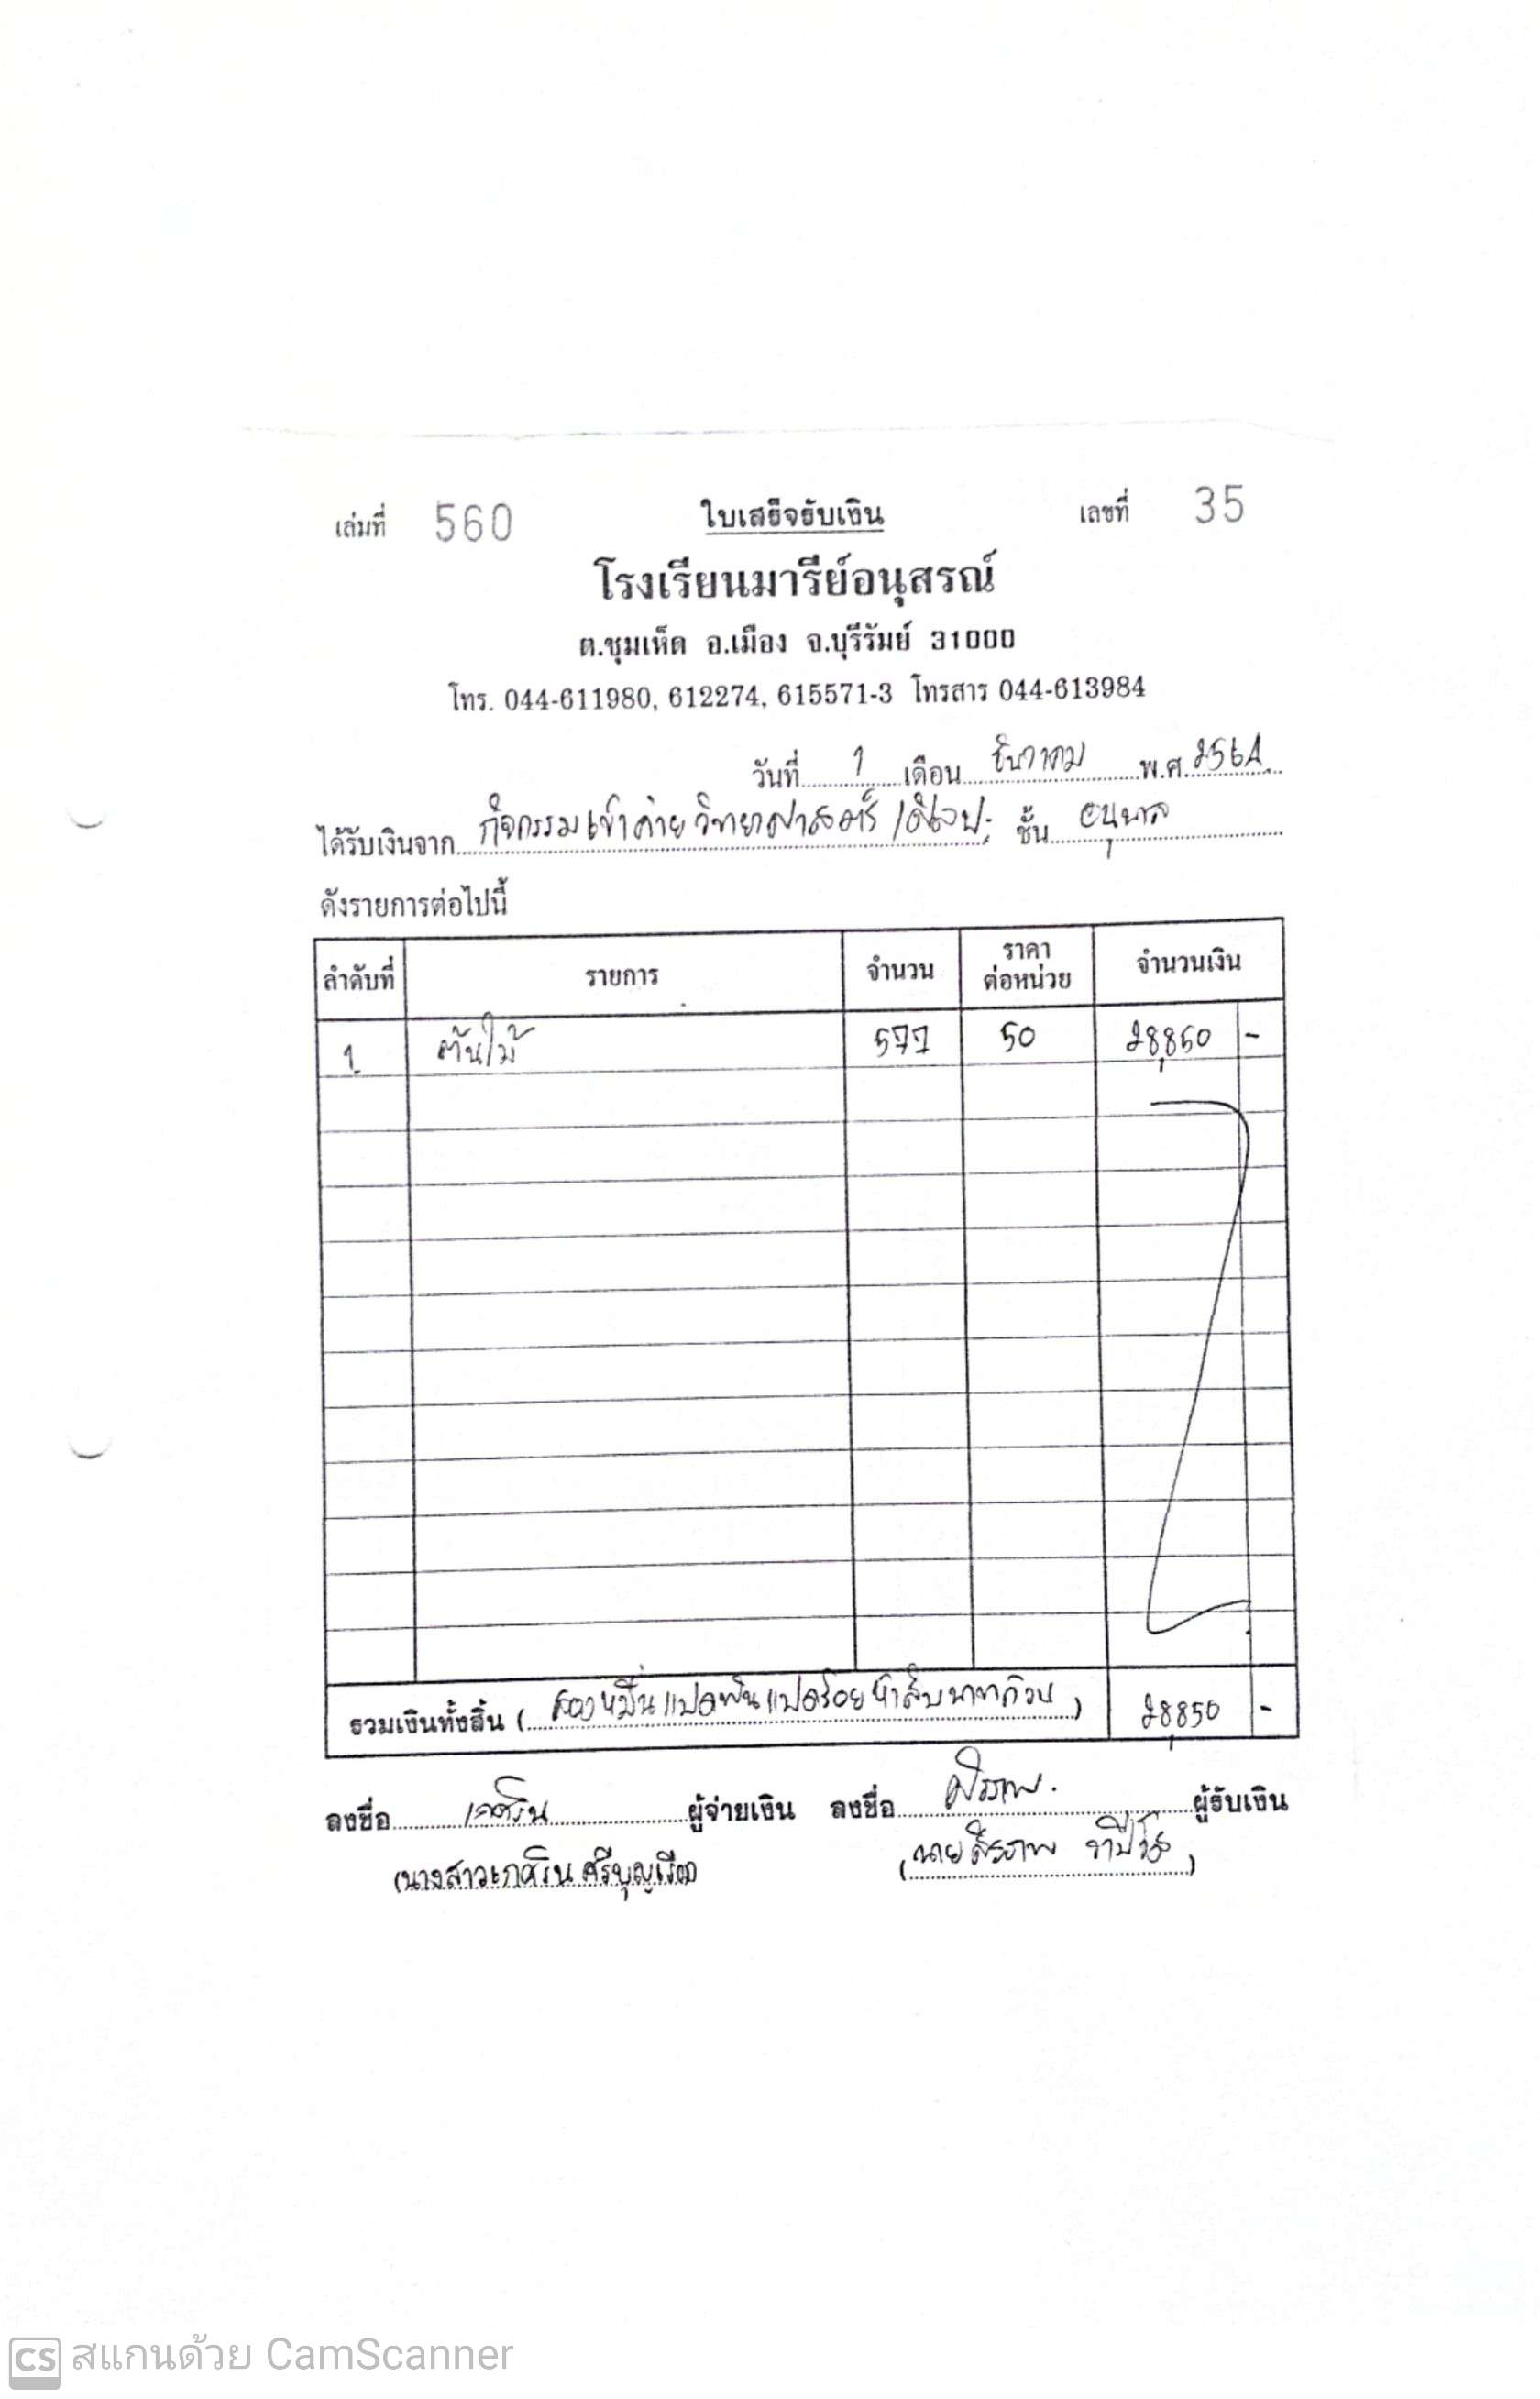 เล่มที่ 560 ใบเสร็จรับเงิน เลขที่ 35
โรงเรียนมารีย์อนุสรณ์
ต.ชุมเห็ด อ.เมือง จ.บุรีรัมย์ 31000
โทร. 044-611980, 612274, 615571-3 โทรสาร 044-613984
วันที่ 1 เดือน ธันวาคม พ.ศ. 2564
ได้รับเงินจาก กิจกรรมเข้าค่ายวิทยาศาสตร์/ศิลปะ ชั้น อนุบาล
ดังรายการต่อไปนี้
ลำดับที่ รายการ จำนวน ราคาต่อหน่วย จำนวนเงิน
1 ต้นไม้ 577 50 28,850 -
รวมเงินทั้งสิ้น ( สองหมื่นแปดพันแปดร้อยห้าสิบบาทถ้วน ) 28,850 -
ลงชื่อ เกศริน ผู้จ่ายเงิน ลงชื่อ ผู้รับเงิน
(นางสาวเกศริน ศรีบุญเรือง) (นาย )
CS สแกนด้วย CamScanner